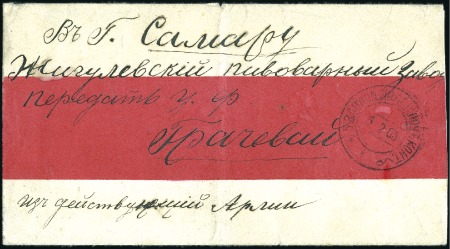 Въ Г. Самару
Жигулевскій пивоварный Завод
передать У. Ф
Грачевий
изъ действующій Армии